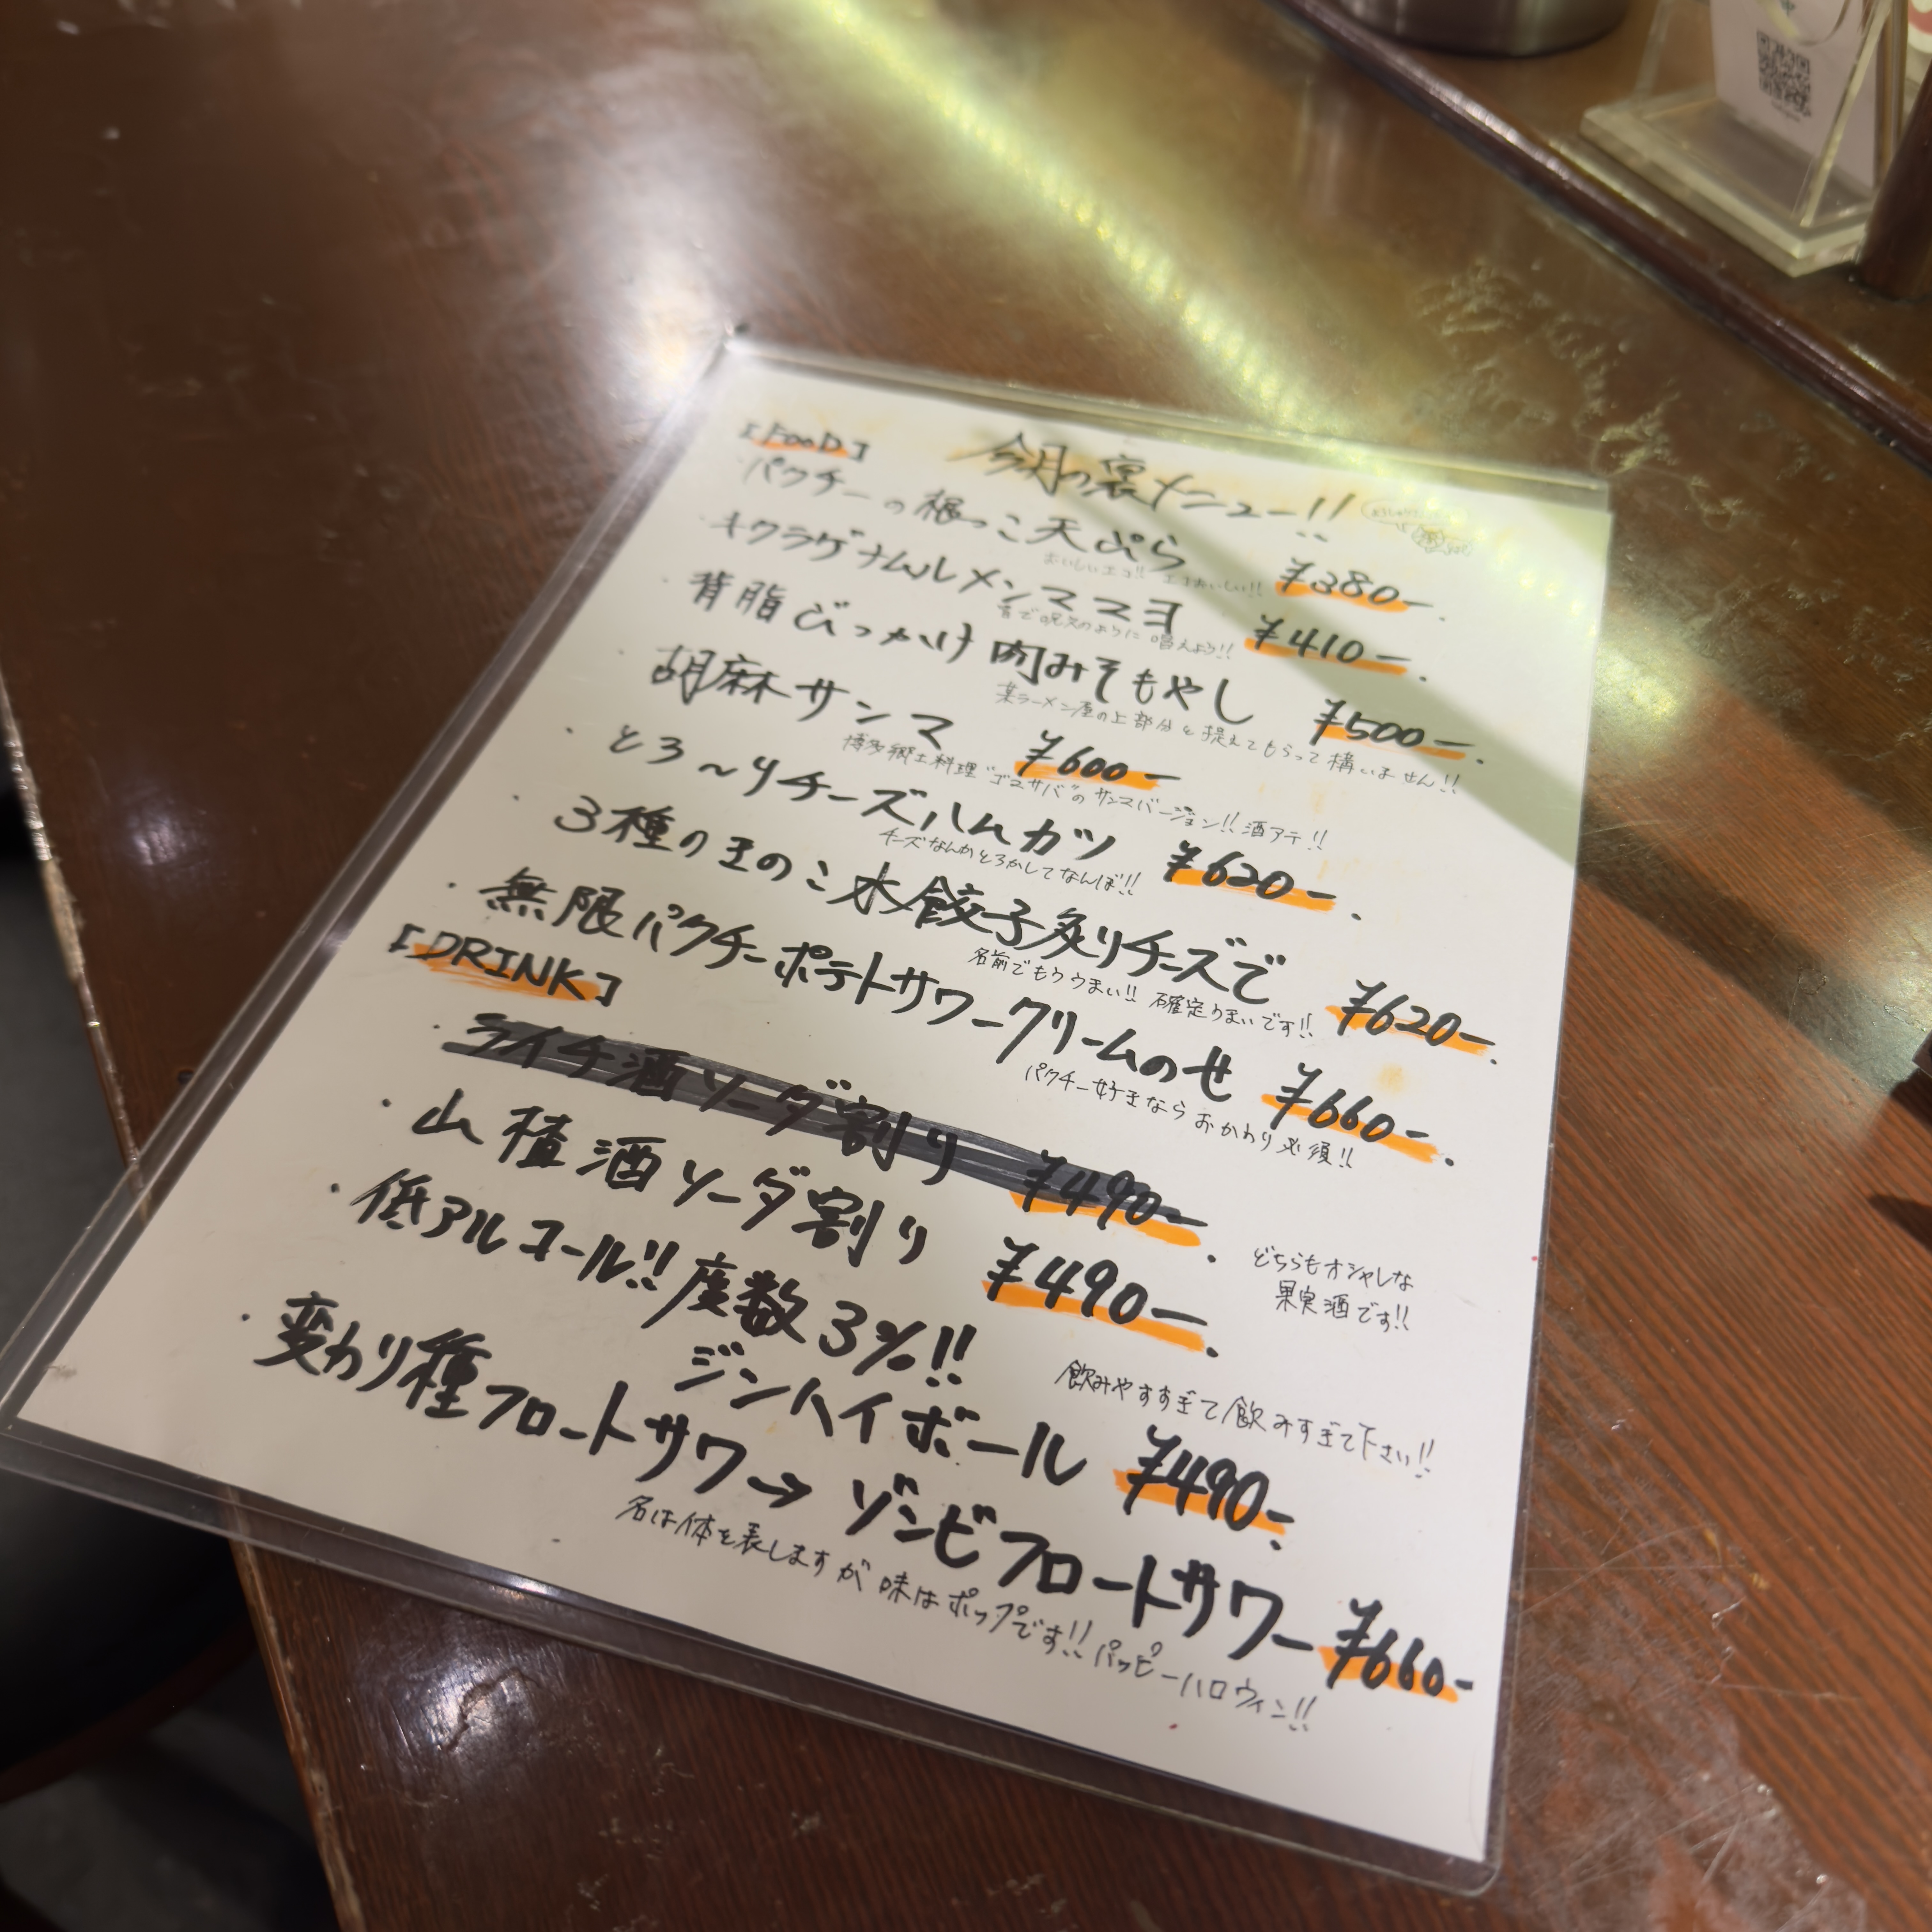 今月の裏メニュー!!
【FOOD】
・パクチーの根っこ天ぷら ¥380-
おいしいエコ!! エコおいしい!!
・キクラゲナムルメンママヨ ¥410-
皆で呪文のように唱えよう!!
・背脂びっかけ肉みそもやし ¥500-
某ラーメン屋の上部分と捉えてもらって構いません!!
・胡麻サンマ ¥600-
博多郷土料理"ゴマサバ"のサンマバージョン!! 酒アテ!!
・とろ〜りチーズハムカツ ¥620-
チーズなんかとろかしてなんぼ!!
・3種のきのこ水餃子炙りチーズで ¥620-
名前でもううまい!! 確定うまいです!!
・無限パクチーポテトサワークリームのせ ¥660-
パクチー好きならおかわり必須!!
【DRINK】
・ライチ酒ソーダ割り ¥490-
・山楂酒ソーダ割り ¥490-
どちらもオシャレな
果実酒です!!
・低アルコール!! 度数3%!!
ジンハイボール ¥490-
飲みやすすぎて飲みすぎて下さい!!
・変わり種フロートサワー→ゾンビフロートサワー ¥660-
名は体を表しますが味はポップです!! パッピーハロウィン!!